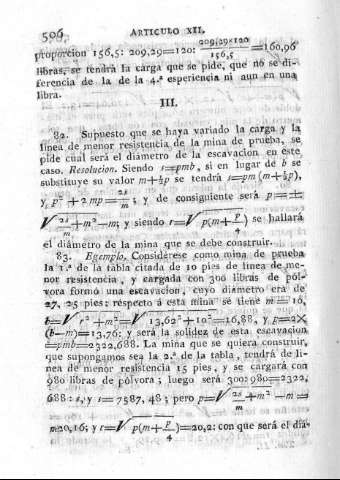 506 ARTICULO XII.
proporcion 156,5: 209,29=120: 209,29×120/156,5=160,96
libras, se tendrá la carga que se pide, que no se di-
ferencia de la de la 4.ª esperiencia ni aun en una
libra.
III.
82. Supuesto que se haya variado la carga y la
linea de menor resistencia de la mina de prueba, se
pide cuál será el diámetro de la escavacion en este
caso. Resolucion. Siendo s=pmb, si en lugar de b se
substituye su valor m+½p se tendrá s=pm(m+½p),
y p²+2mp=2s/m; y de consiguiente será p=±
√2s/m+m²-m; y siendo r=√p(m+p/4) se hallará
el diámetro de la mina que se debe construir.
83. Egemplo. Considérese como mina de prueba
la 1.ª de la tabla citada de 10 pies de linea de me-
nor resistencia, y cargada con 300 libras de pól-
vora formó una escavacion, cuyo diámetro era de
27, 25 pies: respecto á esta mina se tiene m=10,
b=√r²+m²=√13,62²+10²=16,88, y p=2×
(b-m)=13,76; y será la solidez de esta escavacion
=pmb=2322,688. La mina que se quiera construir,
que supongamos sea la 2.ª de la tabla, tendrá de li-
nea de menor resistencia 15 pies, y se cargará con
980 libras de pólvora; luego será 300:980=2322,
688: s, y s=7587, 48; pero p=√2s/m+m²-m=
20,16; y r=√p(m+p/4)=20,2: con que será el diá-